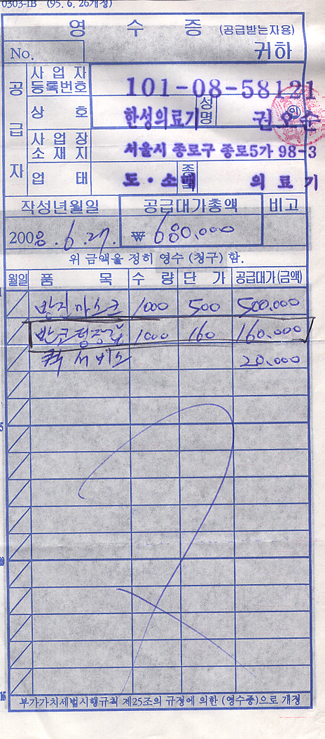 0303-1B (95. 6. 26개정)
영 수 증 (공급받는자용)
No. 귀하
공급자
사업자등록번호 101-08-58121
상호 한성의료기 성명
사업장소재지 서울시 종로구 종로5가 98-3
업태 도·소매 종목 의료기
작성년월일 공급대가총액 비고
2008. 6. 27. ₩ 680,000
위 금액을 정히 영수 (청구) 함.
월일 품 목 수 량 단 가 공급대가(금액)
방진마스크 1000 500 500,000
반코팅장갑 1000 160 160,000
퀵서비스 20,000
부가가치세법시행규칙 제25조의 규정에 의한 (영수증)으로 개정